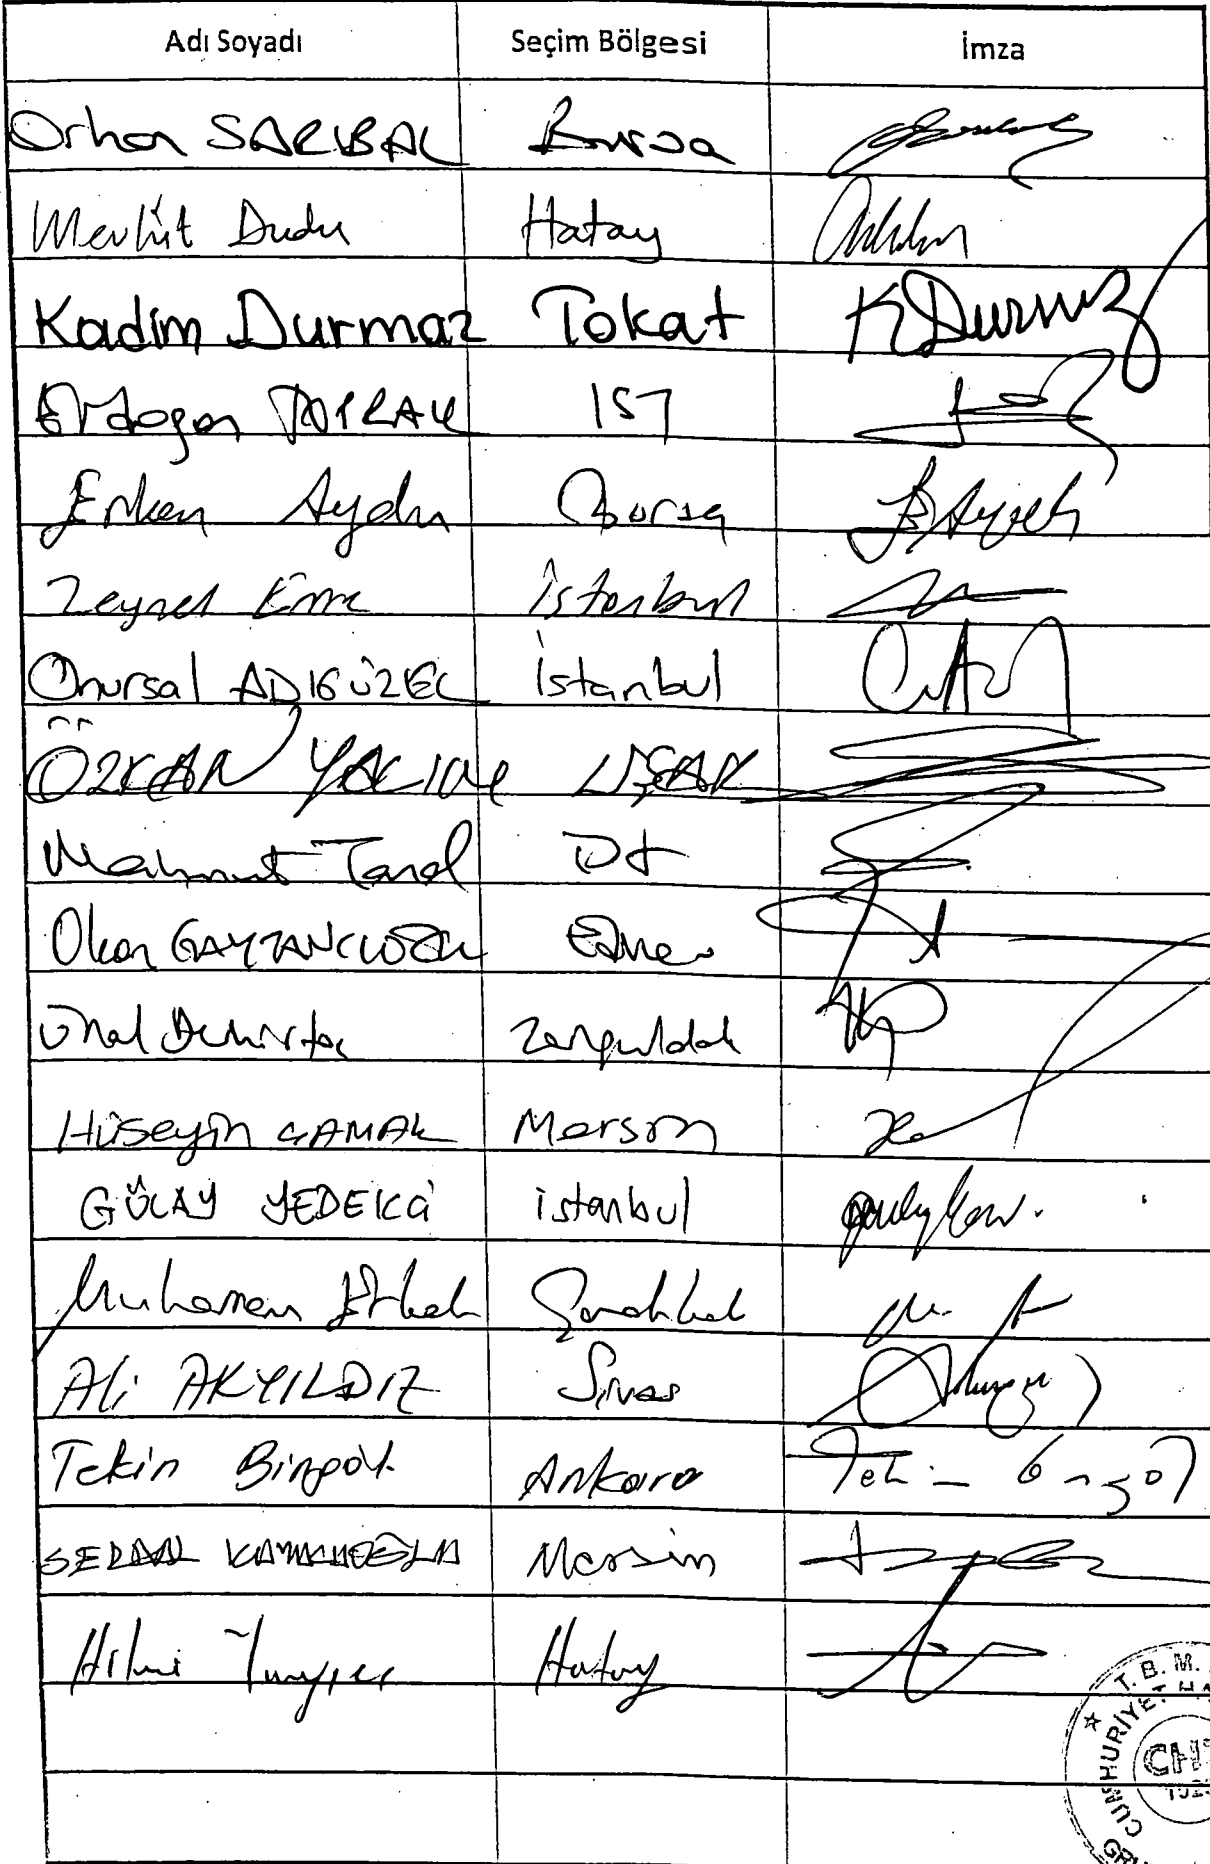 Adı Soyadı Seçim Bölgesi İmza
Orhan SARIBAL Bursa
Mevlüt Dudu Hatay
Kadim Durmaz Tokat K Durmaz
Erdoğan TOPRAK İST
Erkan Aydın Bursa
Zeynel Emre İstanbul
Onursal ADIGÜZEL İstanbul
ÖZKAN YALIM UŞAK
Mahmut Tanal İst
Okan GAYTANCIOĞLU Edirne
Ünal Demirtaş Zonguldak
Hüseyin ÇAMAK Mersin
GÜLAY YEDEKCİ istanbul
Muharrem Erkek Çanakkale
Ali AKYILDIZ Sivas
Tekin Bingöl Ankara Tekin Bingöl
SERDAL KUYUCUOĞLU Mersin
Hilmi Yarayıcı Hatay
T. B. M.
CUMHURİYET HA
CH